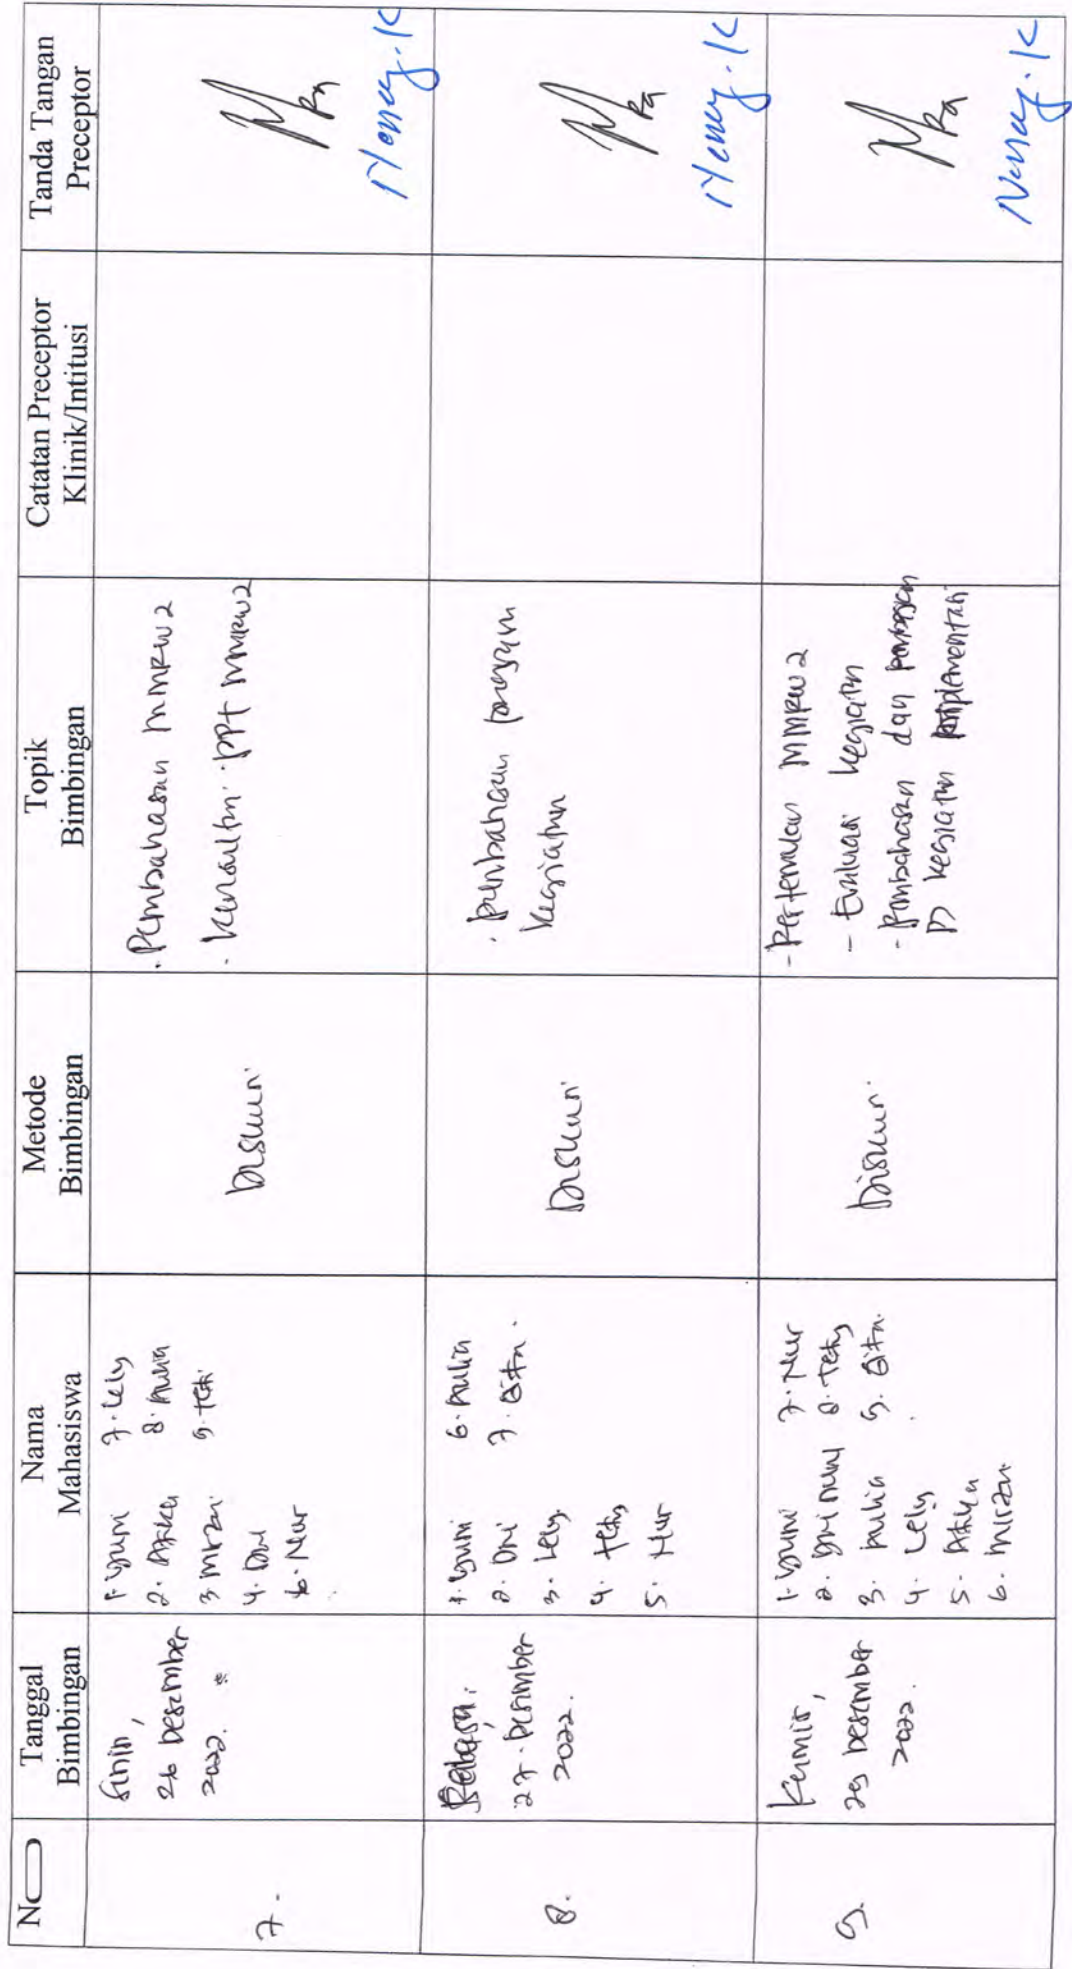 No
Tanggal
Bimbingan
Nama
Mahasiswa
Metode
Bimbingan
Topik
Bimbingan
Catatan Preceptor
Klinik/Intitusi
Tanda Tangan
Preceptor
7.
Senin,
26 Desember
2022.
1. Yuni
2. Afika
3. Mirza
4. Dwi
6. Nur
7. Lely
8. Aulia
9. Teti
Diskusi
. Pembahasan MMRW2
. Konsultasi PPT MMRW2
8.
27. Desember
2022.
1. Yuni
2. Dwi
3. Lely
4. Tety
5. Nur
6. Aulia
7. Gita.
Diskusi
. pembahasan program
kegiatan
9.
Kamis,
29 Desember
2022.
1. Yuni
3. Aulia
4. Lely
5. Afika
6. Mirza
7. Nur
8. Tety
9. Gita
Diskusi
- Pertemuan MMRW2
- Evaluasi kegiatan
- pembahasan dan
kegiatan implementasi